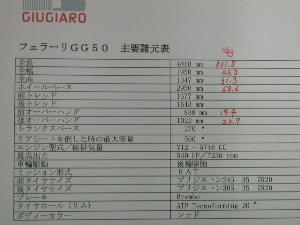 GIUGIARO
フェラーリGG50 主要諸元表
1/43
全長 4810 mm 111.8
全幅 1950 mm 45.3
全高 mm 31.3
ホイールベース 2950 mm 68.6
前トレッド 1577 mm
後トレッド 1543 mm
前オーバーハング 838 mm 19.4
後オーバーハング 1022 mm 23.7
トランクスペース 270 "
リアシートを倒した時の最大容量 500 "
エンジン型式/総排気量 712 - 5748 CC
最高出力 540 HP/7250 rpm
車輪駆動 後輪駆動
ミッション形式 6 AT
前タイヤサイズ ブリジストン245 35 ZR20
後タイヤサイズ ブリジストン305 35 ZR20
ブレーキ Brembo
タイヤホール (リム) ATP Tecnoforming 20 "
ボディーカラー レッド